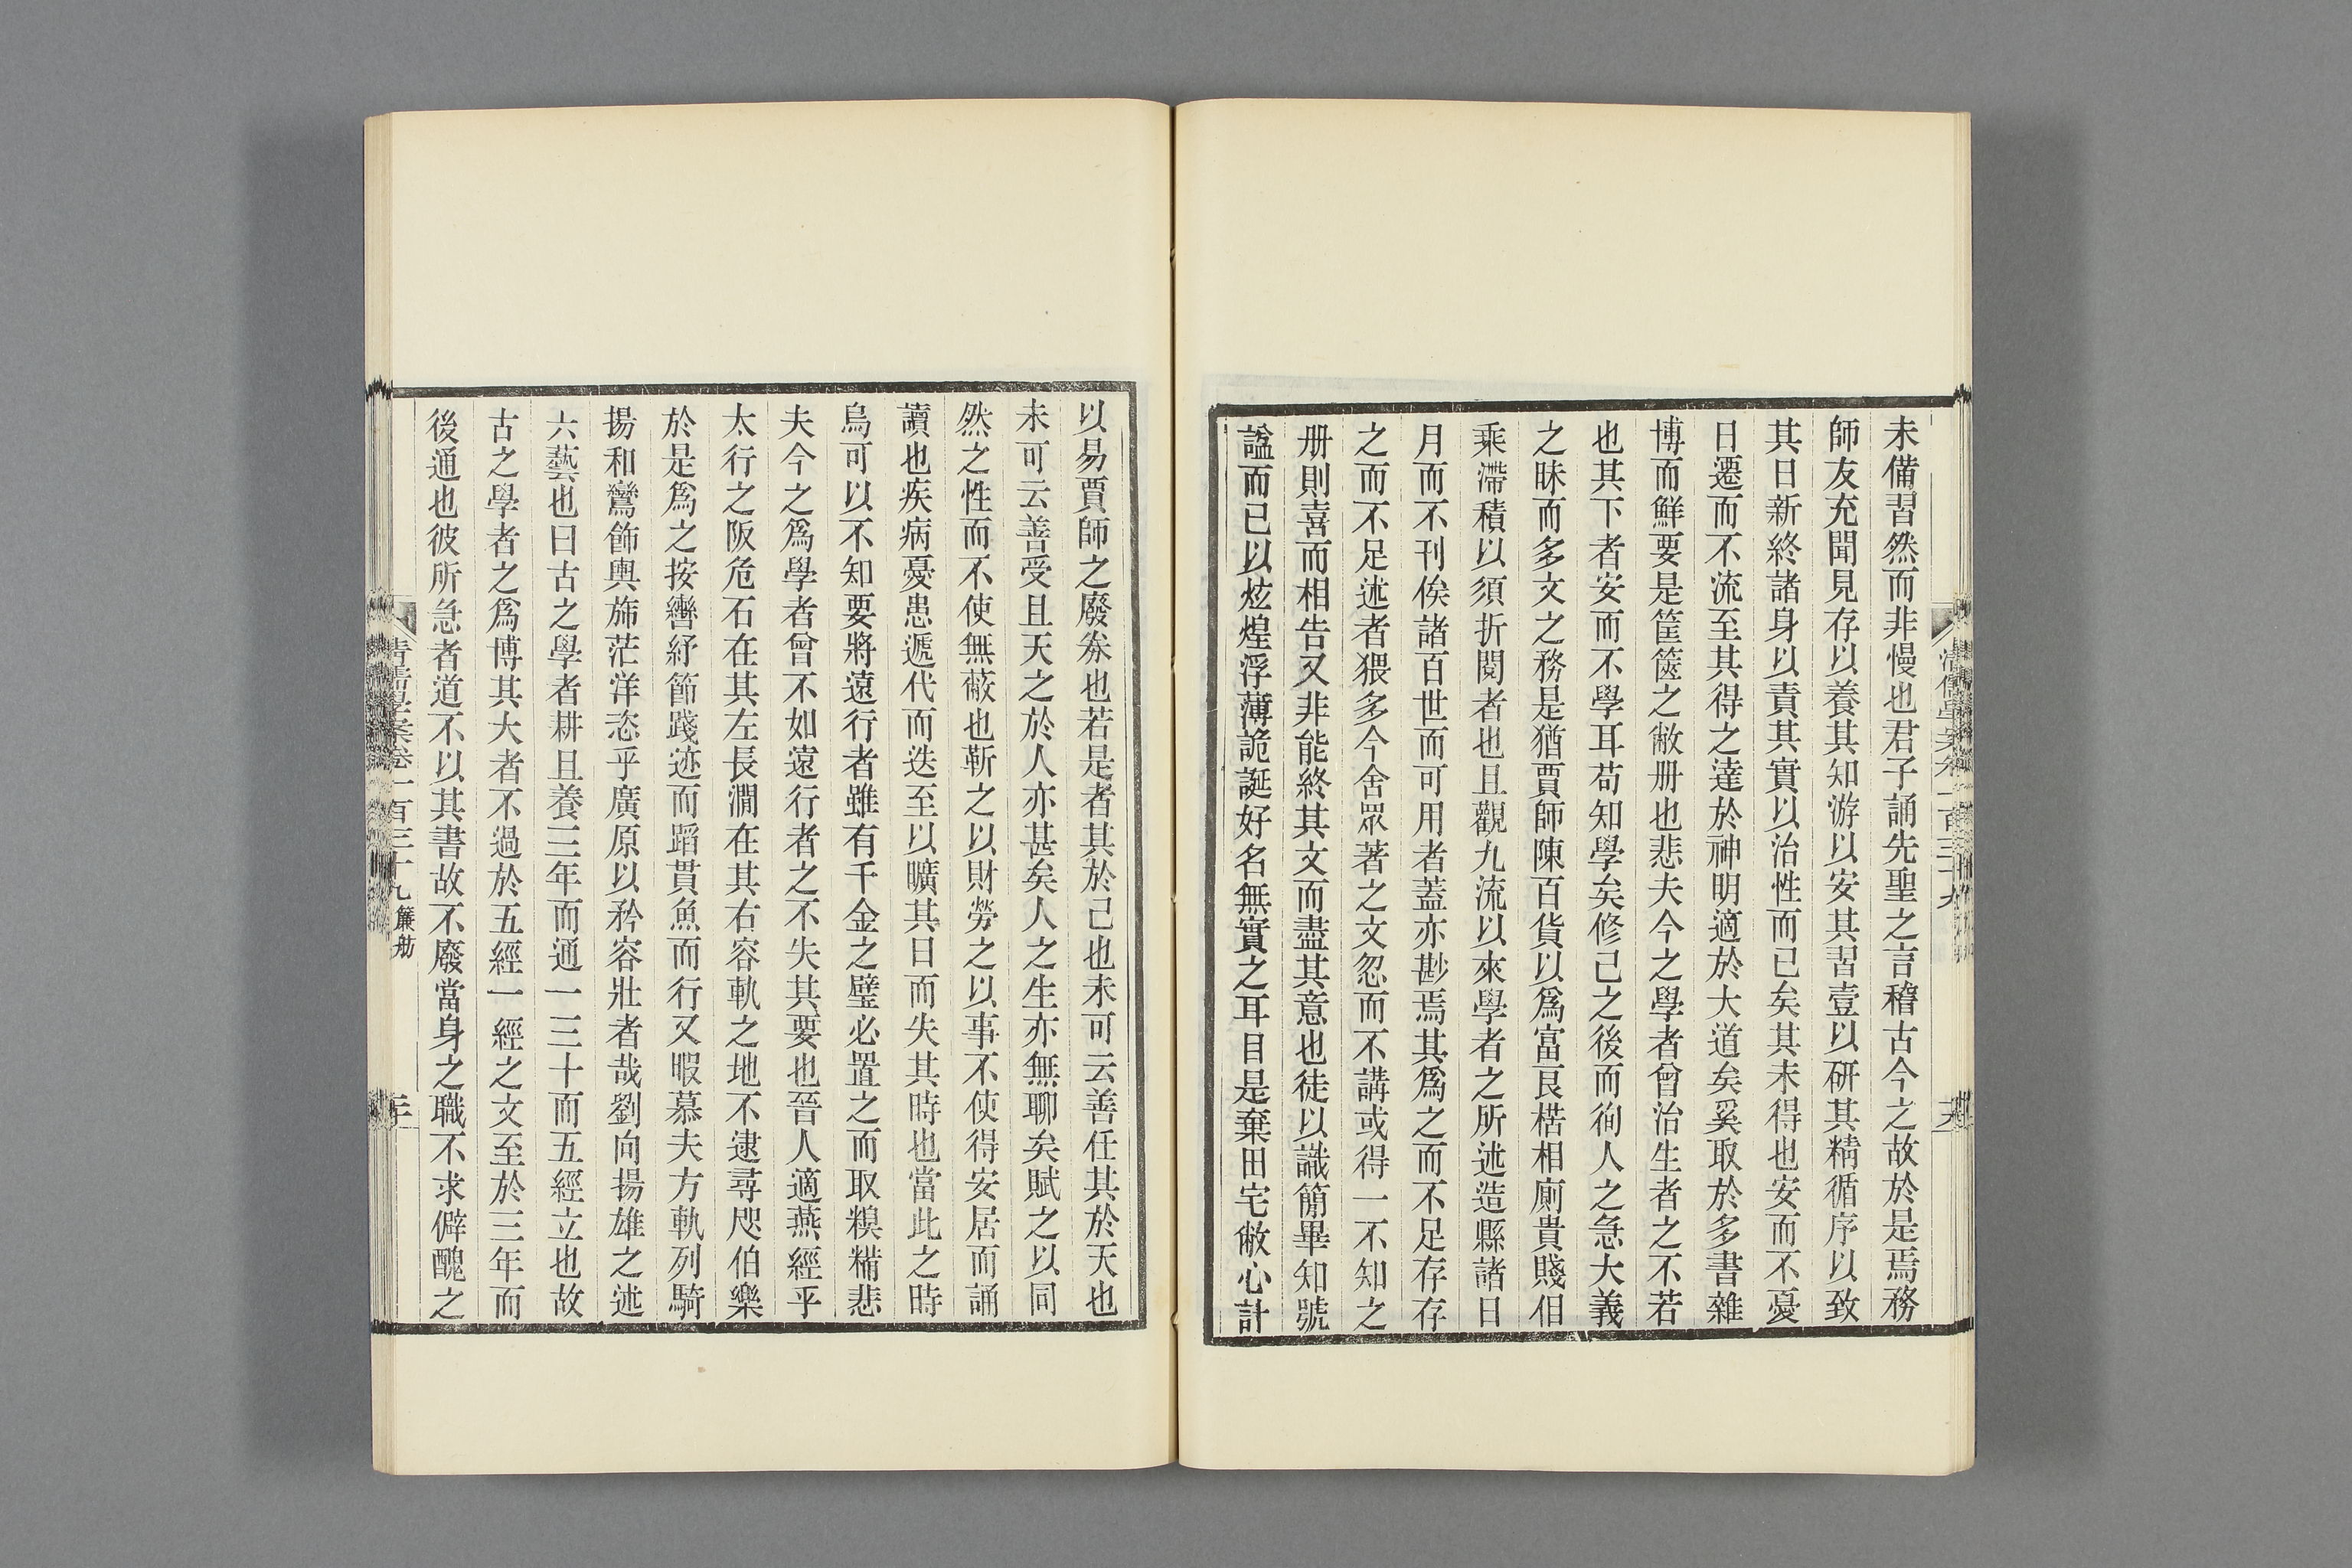 未備習然而非慢也君子誦先聖之言稽古今之故於是焉務
師友充聞見存以養其知游以安其習壹以研其精循序以致
其日新終諸身以責其實以治性而已矣其未得也安而不憂
日遷而不流至其得之達於神明適於大道矣奚取於多書雜
博而鮮要是筐篋之敝册也悲夫今之學者曾治生者之不若
也其下者安而不學耳苟知學矣修己之後而徇人之急大義
之昧而多文之務是猶賈師陳百貨以爲富艮楛相廁貴賤佀
乘滯積以須折閱者也且觀九流以來學者之所述造縣諸日
月而不刊俟諸百世而可用者蓋亦尠焉其爲之而不足存存
之而不足述者猥多今舍眾著之文忽而不講或得一不知之
册則喜而相告又非能終其文而盡其意也徒以識簡畢知號
諡而已以炫煌浮薄詭誕好名無實之耳目是棄田宅敝心計
以易賈師之廢券也若是者其於己也未可云善任其於天也
未可云善受且天之於人亦甚矣人之生亦無聊矣賦之以同
然之性而不使無蔽也靳之以財勞之以事不使得安居而誦
讀也疾病憂患遞代而迭至以曠其日而失其時也當此之時
烏可以不知要將遠行者雖有千金之璧必置之而取糗糒悲
夫今之爲學者曾不如遠行者之不失其要也晉人適燕經乎
太行之阪危石在其左長澗在其右容軌之地不逮尋咫伯樂
於是爲之按轡紓節踐迹而蹈貫魚而行又暇慕夫方軌列騎
揚和鸞飾輿斾茫洋恣乎廣原以矜容壯者哉劉向揚雄之述
六藝也曰古之學者耕且養三年而通一三十而五經立也故
古之學者之爲博其大者不過於五經一經之文至於三年而
後通也彼所急者道不以其書故不廢當身之職不求僻醜之
清儒學案卷一百三十九 簾舫